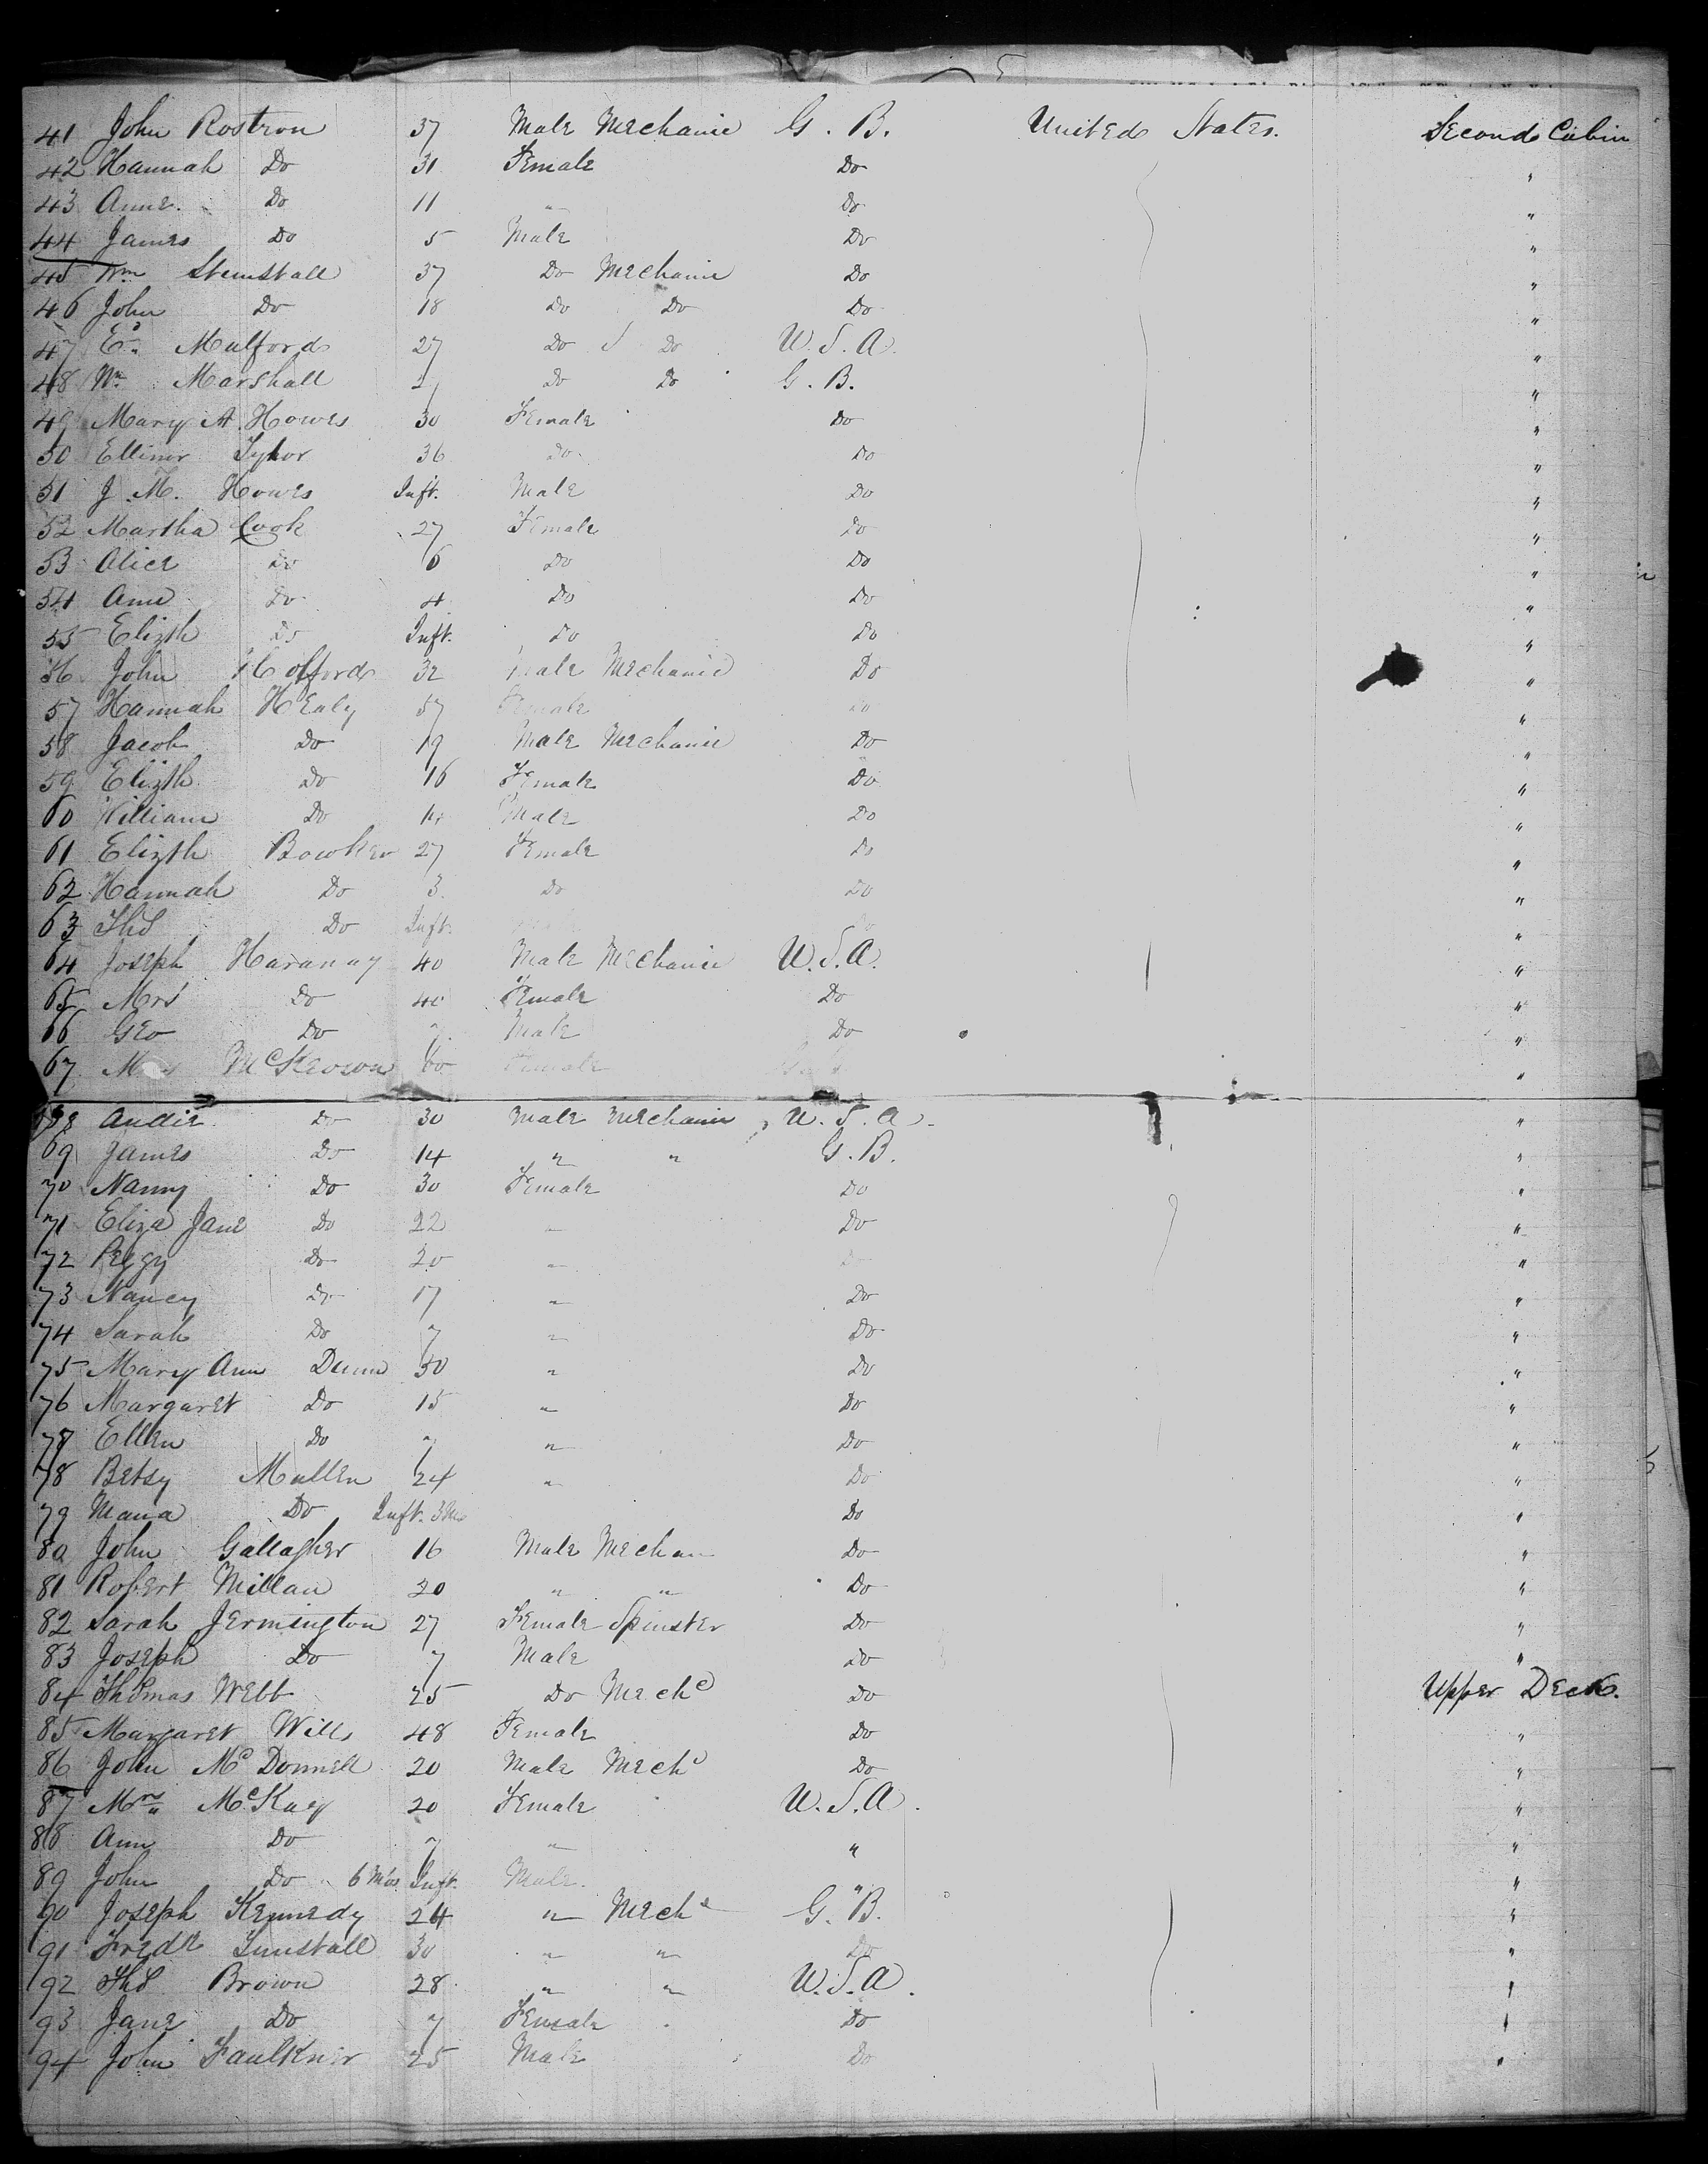 41 John Rostron 37 Male Mechanic G. B. United States. Second Cabin
42 Hannah Do 31 Female Do "
43 Anne. Do 11 " Do "
44 James Do 5 Male Do "
45 Wm Stunstall 37 Do Mechanic Do "
46 John Do 18 Do Do Do "
47 Ed. Mulford 27 Do Do U. S. A. "
48 Wm Marshall Do Do G. B. "
49 Mary A. Howes 30 Female Do "
50 Ellinor 36 do Do "
51 J. M. Howes Inft. Male Do "
52 Martha Cook 27 Female Do "
53 Alice Do 6 Do Do "
54 Ann Do 4 Do Do "
55 Elizth Do Inft. Do Do "
56 John 32 Male Mechanic Do "
57 Hannah Healy 57 Female Do "
58 Jacob Do 19 Male Mechanic Do "
59 Elizth Do 16 Female Do "
60 William Do Male Do "
61 Elizth Bowker 27 Female Do "
62 Hannah Do 3. Do Do "
63 Ths Do Inft. Do "
64 Joseph Haranay 40 Male Mechanic U. S. A. "
65 Mrs Do 40 Female Do "
66 Geo Do 7 Male Do "
67 McKeown 60 Female "
68 Andie Do 30 Male Mechanic U. S. A. "
69 James Do 14 " " G. B. "
70 Nanny Do 30 Female Do "
71 Eliza Jane Do 22 " Do "
72 Peggy Do 20 " Do "
73 Nancy Do 17 " Do "
74 Sarah Do 7 " Do "
75 Mary Ann Dunn 50 " Do "
76 Margaret Do 15 " Do "
77 Ellen Do 7 " Do "
78 Betsy Mullen 24 " Do "
79 Maria Do Inft. 3 Mo Do "
80 John Gallagher 16 Male Mechan Do "
81 Robert Millan 20 " " Do "
82 Sarah Jermington 27 Female Spinster Do "
83 Joseph Do 7 Male Do "
84 Thomas Webb 25 Do Mechc Do Upper Deck.
85 Margaret Wills 48 Female Do "
86 John McDonnell 20 Male Mechc Do "
87 Mrs McKay 20 Female U. S. A. "
88 Ann Do 7 " " "
89 John Do 6 Mos Inft. Male. " "
90 Joseph Kennedy 24 " Mechc G. B. "
91 Fredk Tunstall 30 " " Do "
92 Ths Brown 28 " " U. S. A. "
93 Jane Do 7 Female Do "
94 John Faulkner 25 Male Do "